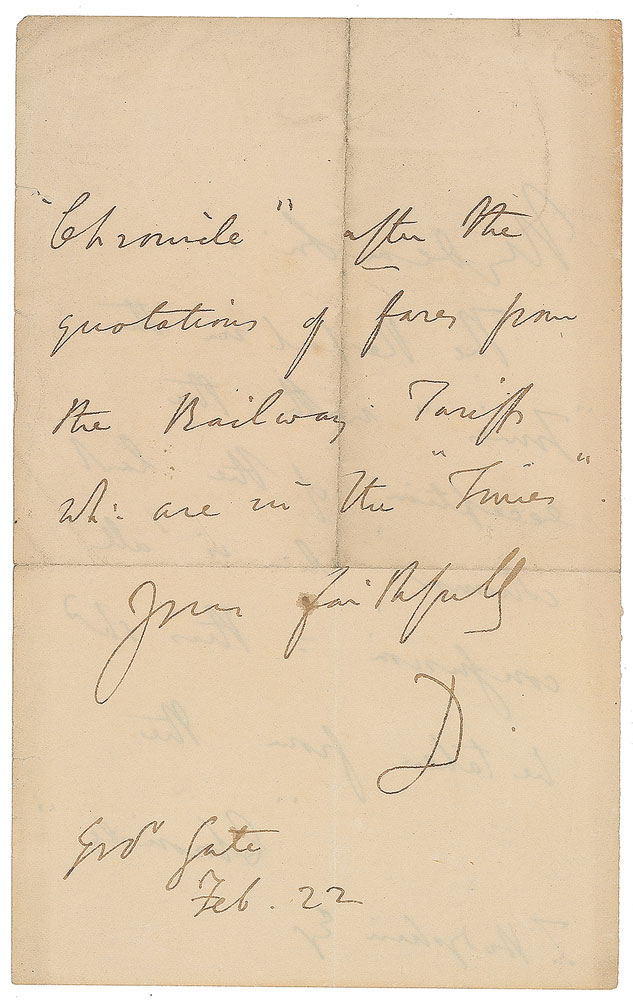 "Chronicle" after the
quotations of fares from
the Railway Tariffs
wh: are in the "Times".
Yours faithfully
D.
Gros Gate
Feb. 22